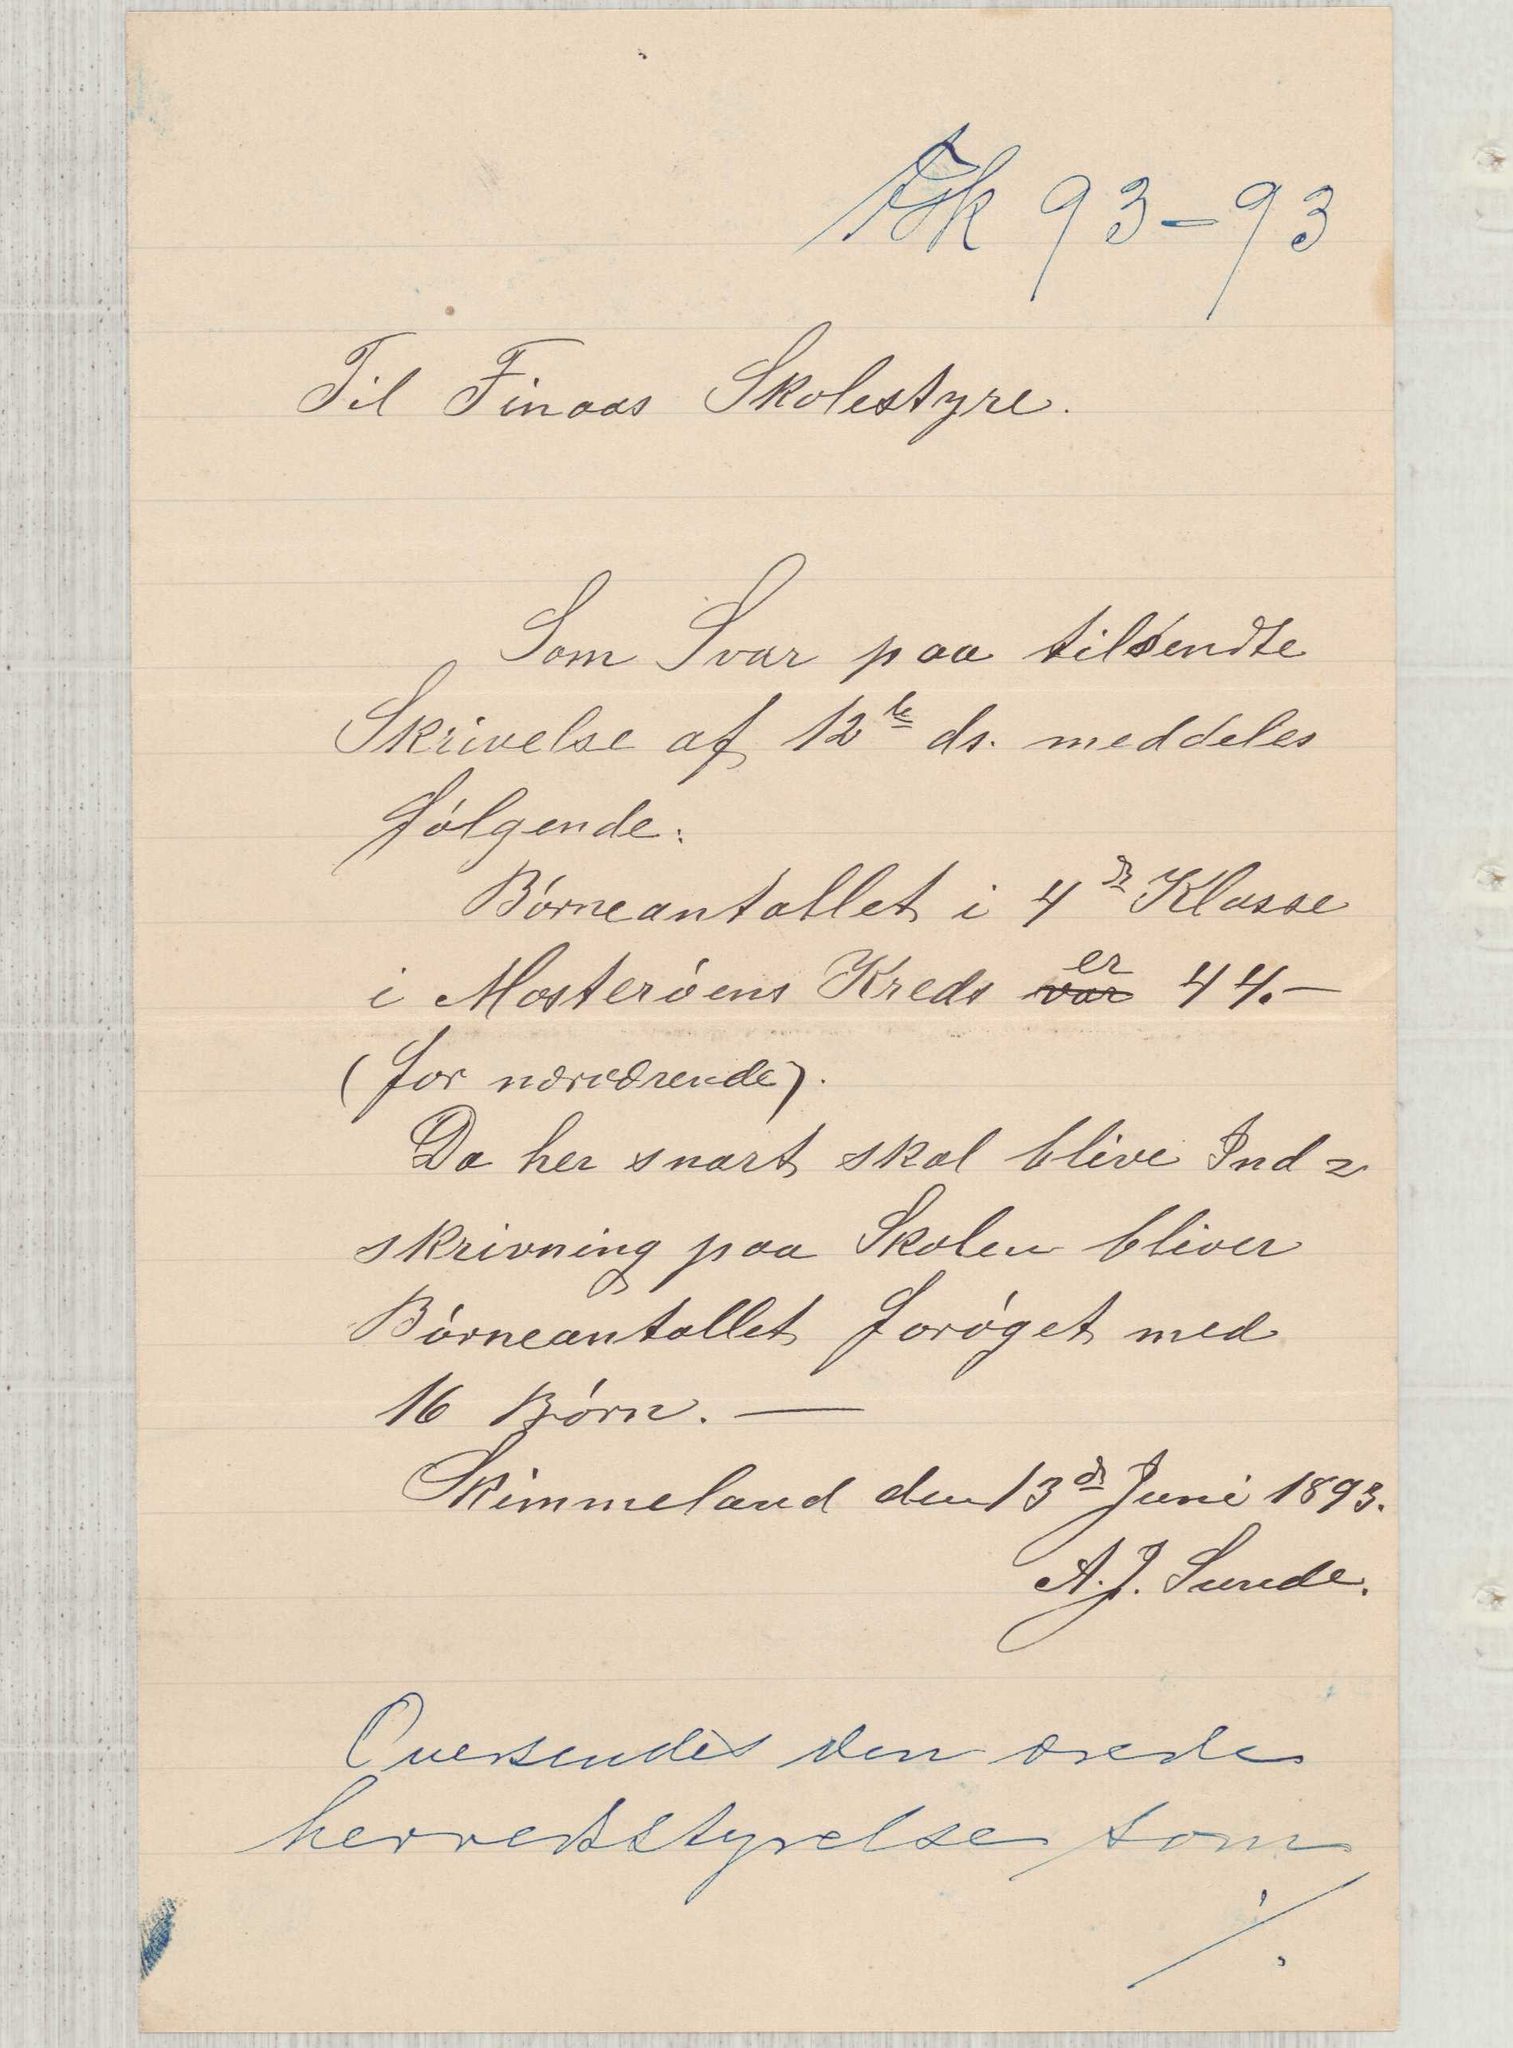 Fsk 93-93
Til Finaas Skolestyre.
Som Svar paa tilsendte
Skrivelse af 12te ds. meddeles
følgende:
Børneantallet i 4de Klasse
i Mosterøens Kreds var er 44.-
(for nærværende).
Da her snart skal blive Ind=
skrivning paa Skolen bliver
Børneantallet forøget med
16 Børn. —
Skimmeland den 13de Juni 1893.
A. J. Sunde.
Oversendes den ærede
herredsstyrelse som
./.